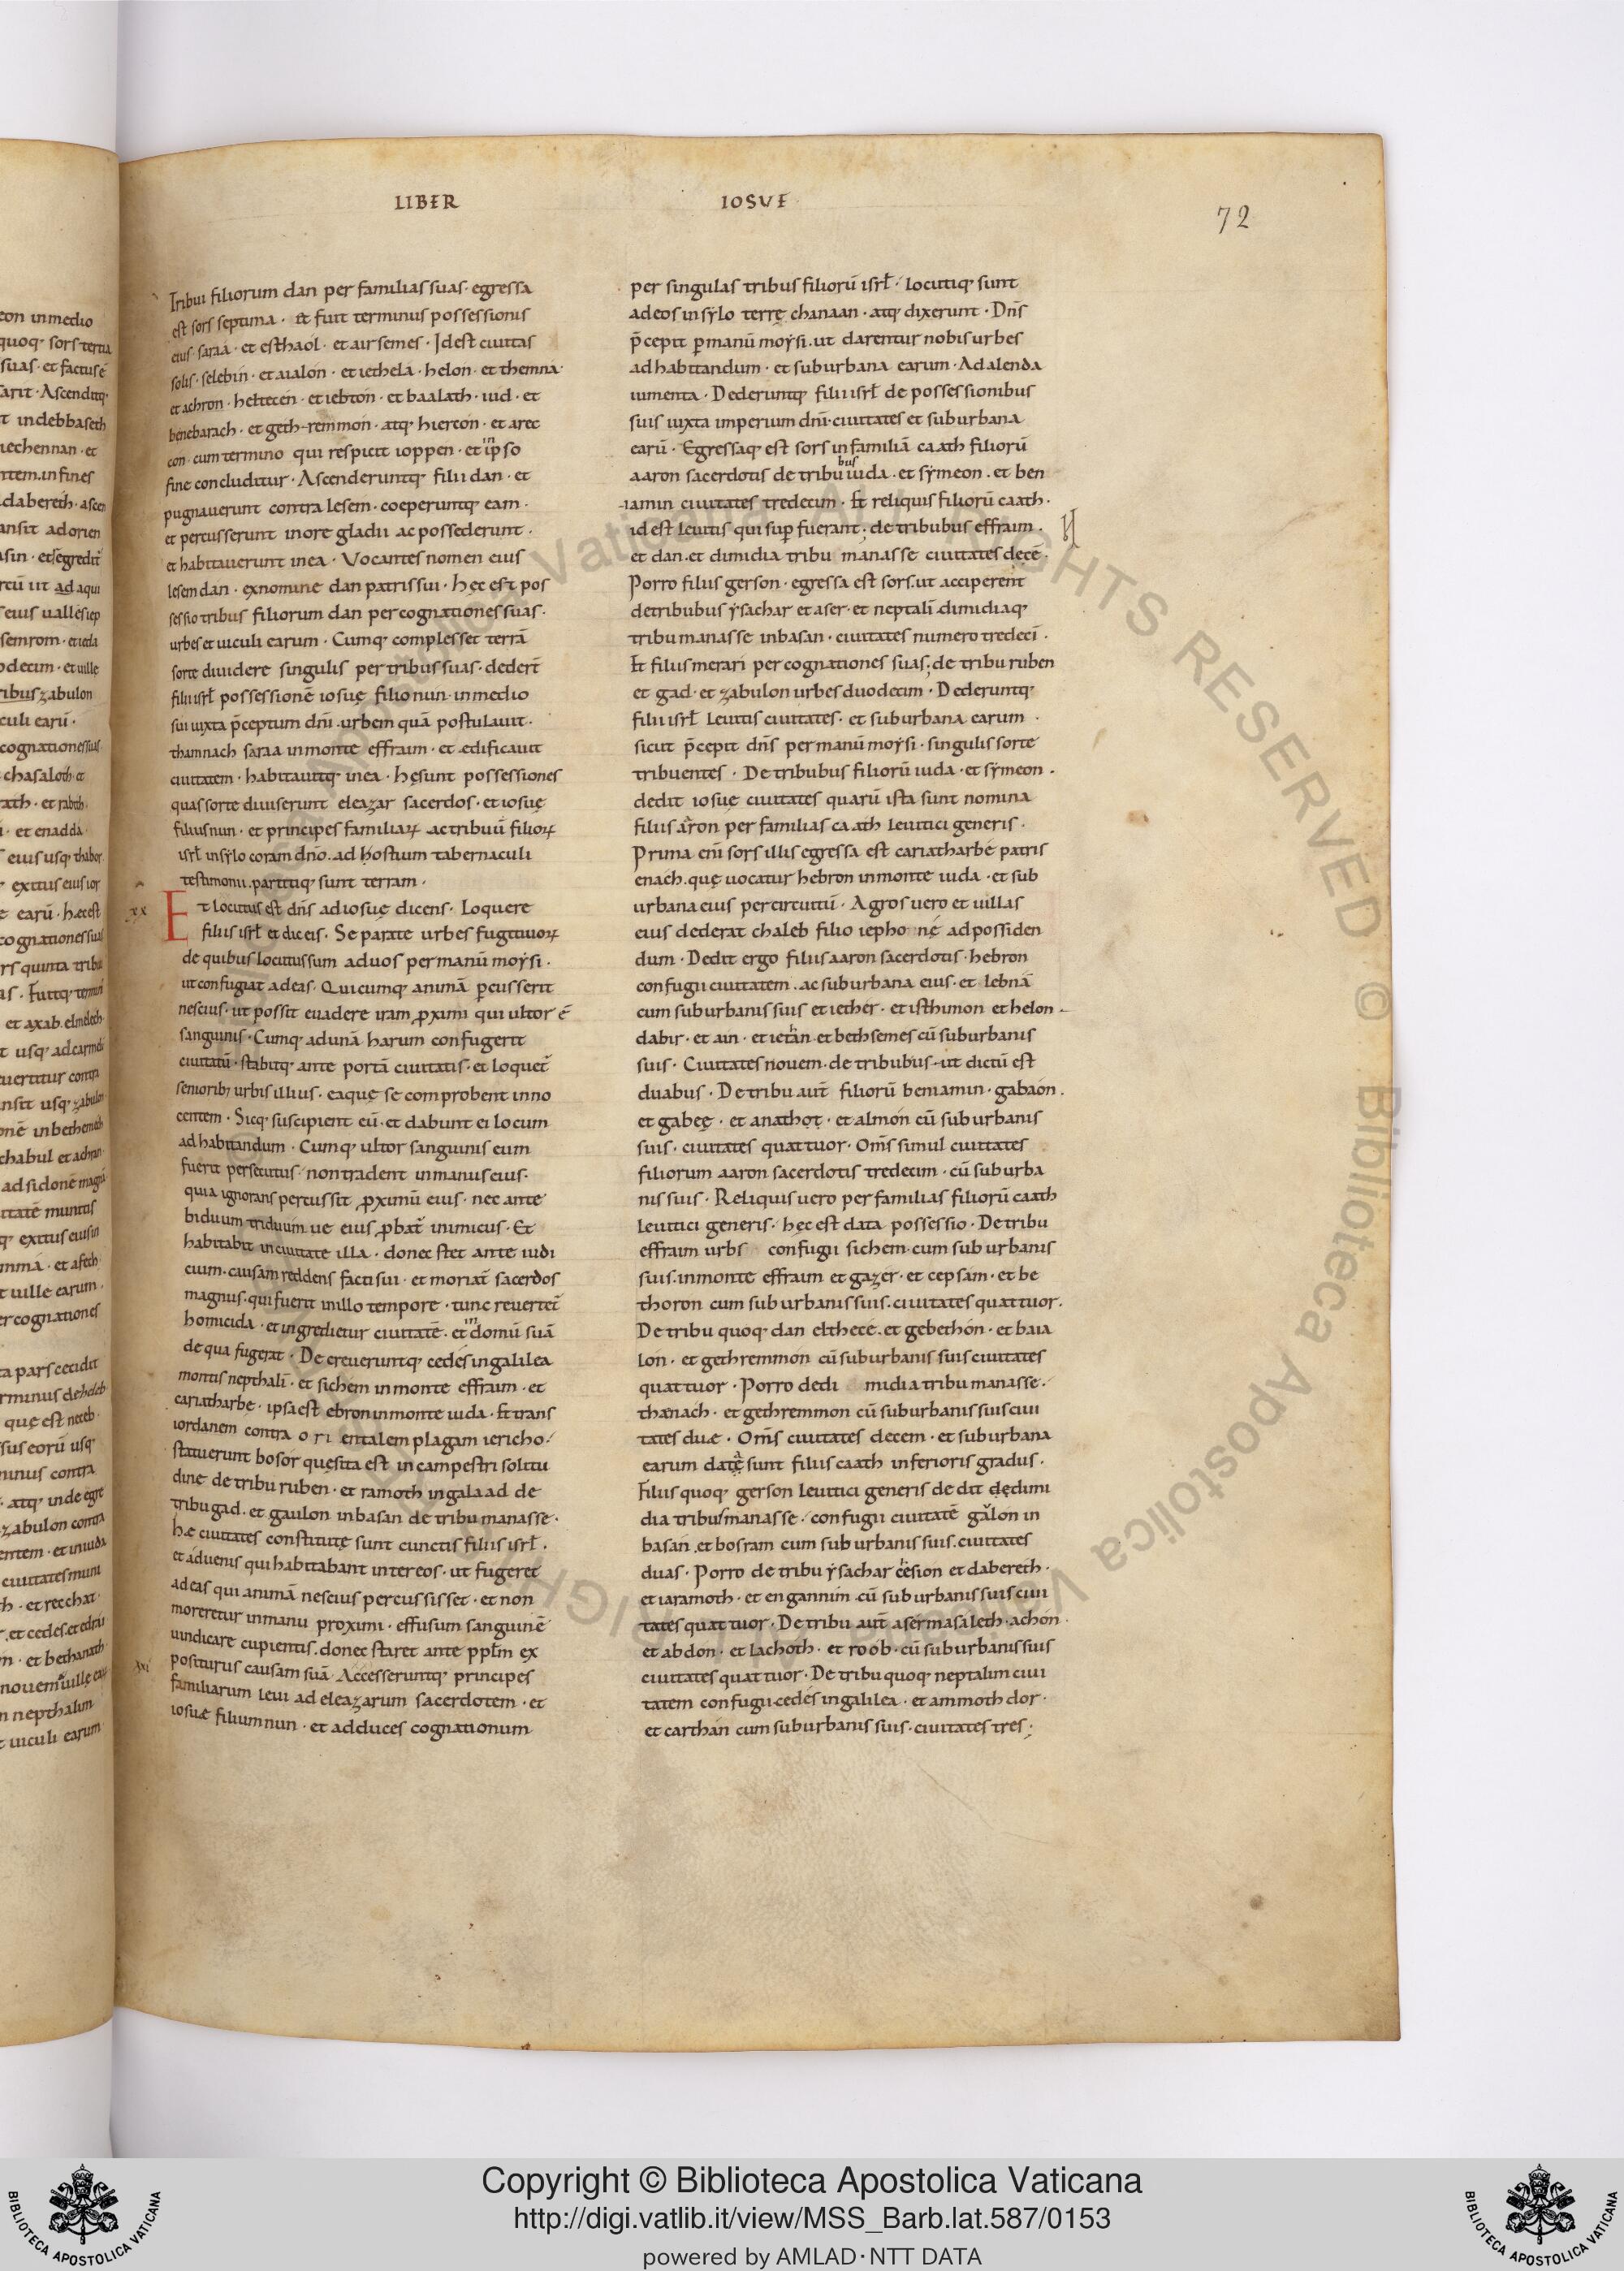 LIBER IOSUE
72
Tribui filiorum dan per familias suas· egressa
est sors septima· et fuit terminus possessionis
eius· saraa· et esthaol· et airsemes· Idest ciuitas
solis· selebin· et aialon· et iethela· helon· et themna·
et achron· helrecen· et iebton· et baalath· iud· et
benebarach· et geth-remmon· atq; hiercon· et arec
con· cum termino qui respicit ioppen· et in ipso
fine concluditur· Ascenderuntq; filii dan· et
pugnauerunt contra lesem· coeperuntq; eam·
et percusserunt inore gladii ac possederunt·
et habitauerunt inea· Vocantes nomen eius
lesem dan· exnomine dan patris sui· hęc est pos
sessio tribus filiorum dan per cognationes suas·
urbes et uiculi earum· Cumq; complesset terrā
sorte diuidere singulis per tribus suas· dedert̄
filii isrł possessionē iosuę filio nun· inmedio
sui iuxta p̄ceptum dn̄i· urbem quā postulauit·
thamnach saraa inmonte effraim· et ædificauit
ciuitatem· habitauitq; inea· hę sunt possessiones
quas sorte diuiserunt eleazar sacerdos· et iosuę
filius nun· et principes familiaꝝ ac tribuū filioꝝ
isrł insylo coram dn̄o· ad hostium tabernaculi
testimonii· partitiq; sunt terram·
xx
Et locutus est dn̄s ad iosuę dicens· Loquere
filiis isrł et dic eis· Separate urbes fugitiuoꝝ
de quibus locutus sum ad uos per manū moysi·
ut confugiat ad eas· Quicumq; animā ꝑcusserit
nescius· ut possit euadere iram ꝓximi qui ultor ē
sanguinis· Cumq; ad unā harum confugerit
ciuitatū· stabitq; ante portā ciuitatis· et loquet̄
seniorib; urbis illius· eaque se comprobent inno
centem· Sicq; suscipient eū· et dabunt ei locum
ad habitandum· Cumq; ultor sanguinis eum
fuerit persecutus· non tradent inmanus eius·
quia ignorans percussit ꝓximū eius· nec ante
biduum triduum ue eius ꝓbat̄ inimicus· Et
habitabit in ciuitate illa· donec stet ante iudi
cium· causam reddens facti sui· et moriat̄ sacerdos
magnus· qui fuerit inillo tempore· tunc reuertet̄
homicida· et ingredietur ciuitatē· et in domū suā
de qua fugerat· Decreueruntq; cedes ingalilea
montis nepthali· et sichem inmonte effraim· et
cariatharbe· ipsa est ebron inmonte iuda· Et trans
iordanem contra orientalem plagam iericho·
statuerunt bosor quę sita est in campestri solitu
dine de tribu ruben· et ramoth ingalaad de
tribu gad· et gaulon inbasan de tribu manasse·
hæ ciuitates constitutę sunt cunctis filiis isrł·
et aduenis qui habitabant inter eos· ut fugeret
ad eas qui animā nescius percussisset· et non
moreretur inmanu proximi· effusum sanguinē
uindicare cupientis· donec staret ante ppłm ex
xxi
positurus causam suā· Accesseruntq; principes
familiarum leui ad eleazarum sacerdotem· et
iosue filium nun· et ad duces cognationum
per singulas tribus filiorū isrł· locutiq; sunt
ad eos insylo terrę chanaan· atq; dixerunt· Dn̄s
p̄cepit ꝑ manū moysi· ut darentur nobis urbes
ad habitandum· et suburbana earum· Ad alenda
iumenta· Dederuntq; filii isrł de possessionibus
suis iuxta imperium dn̄i· ciuitates et suburbana
earū· Egressaq; est sors infamiliā caath filiorū
aaron sacerdotis de tribubus iuda· et symeon· et ben
iamin ciuitates tredecim· Et reliquis filiorū caath·
id est leuitis qui suꝑ fuerant; de tribubus effraim·
et dan· et dimidia tribu manasse ciuitates decē·
Porro filiis gerson· egressa est sors· ut acciperent
detribubus ysachar et aser· et neptali dimidiaq;
tribu manasse inbasan· ciuitates numero tredecī·
Et filiis merari per cognationes suas; de tribu ruben
et gad· et zabulon urbes duodecim· Dederuntq;
filii isrł leuitis ciuitates· et suburbana earum·
sicut p̄cepit dn̄s per manū moysi· singulis sorte
tribuentes· De tribubus filiorū iuda· et symeon·
dedit iosue ciuitates quarū ista sunt nomina
filiis aaron per familias caath leuitici generis·
Prima eni sors illis egressa est cariatharbe patris
enach· quę uocatur hebron inmonte iuda· et sub
urbana eius per circuitū· Agros uero et uillas
eius dederat chaleb filio iephonne ad possiden
dum· Dedit ergo filiis aaron sacerdotis· hebron
confugii ciuitatem· ac suburbana eius· et lebnā
cum suburbanis suis et iether· et isthimon et helon·
dabir· et ain· et iethan· et bethsemes cū suburbanis
suis· Ciuitates nouem· de tribubus· ut dictū est
duabus· De tribu aut̄ filiorū beniamin· gabaon·
et gabeę· et anathot· et almon cū suburbanis
suis· ciuitates quattuor· Om̄s simul ciuitates
filiorum aaron sacerdotis tredecim· cū suburba
nis suis· Reliquis uero per familias filiorū caath
leuitici generis· hęc est data possessio· De tribu
effraim urbs confugii sichem· cum suburbanis
suis· inmonte effraim et gazer· et cepsam· et be
thoron cum suburbanis suis· ciuitates quattuor·
De tribu quoq; dan elthece· et gebethon· et haia
lon· et gethremmon cū suburbanis suis ciuitates
quattuor· Porro dedi midia tribu manasse·
thanach· et gethremmon cū suburbanis suis ciui
tates duæ· Om̄s ciuitates decem· et suburbana
earum datę sunt filiis caath inferioris gradus·
Filiis quoq; gerson leuitici generis dedit dędimi
dia tribu manasse· confugii ciuitatē galon in
basan· et bosram cum suburbanis suis· ciuitates
duas· Porro de tribu ysachar cesion et dabereth·
et iaramoth· et engannim· cū suburbanis suis ciui
tates quattuor· De tribu aut̄ aser masaleth· achon·
et abdon· et lachoth· et roob· cū suburbanis suis
ciuitates quattuor· De tribu quoq; neptalim ciui
tatem confugii· cedes ingalilea· et ammoth dor·
et carthan cum suburbanis suis· ciuitates tres;
Copyright © Biblioteca Apostolica Vaticana
http://digi.vatlib.it/view/MSS_Barb.lat.587/0153
powered by AMLAD·NTT DATA
BIBLIOTECA APOSTOLICA VATICANA
BIBLIOTECA APOSTOLICA VATICANA